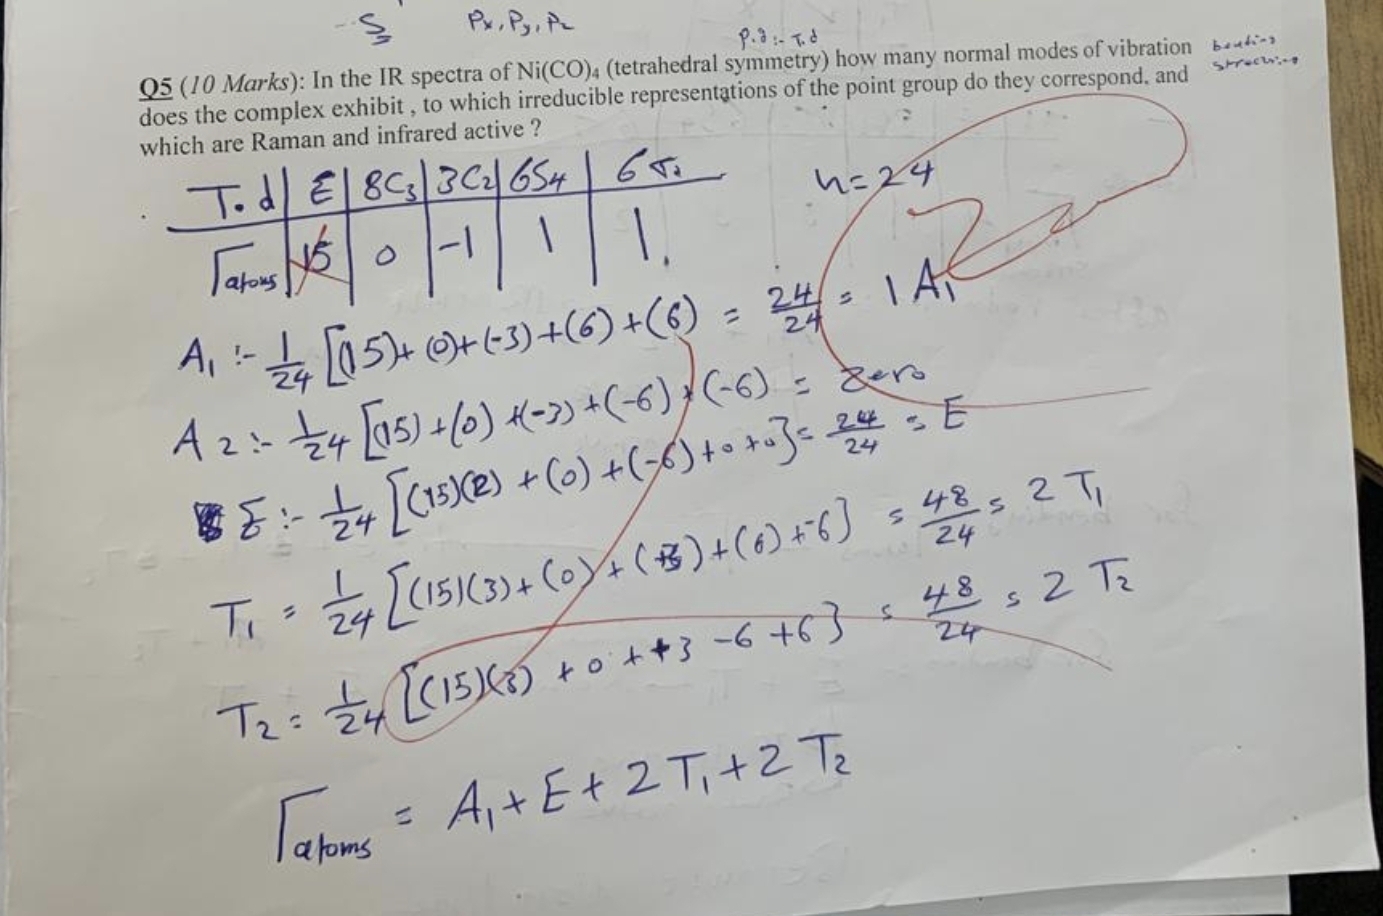 S Px, Py, Pz
P.g :- T.d
Q5 (10 Marks): In the IR spectra of Ni(CO)4 (tetrahedral symmetry) how many normal modes of vibration
does the complex exhibit , to which irreducible representations of the point group do they correspond, and
which are Raman and infrared active ?
T.d | E | 8C3 | 3C2 | 6S4 | 6σ
h=24
Γatoms | 15 | 0 | -1 | 1 | 1
A1 :- 1/24 [(15)+(0)+(-3)+(6)+(6) = 24/24 = 1 A1
A2 :- 1/24 [(15)+(0)+(-3)+(-6)+(-6) = Zero
E :- 1/24 [(15)(2)+(0)+(-6)+0+0] = 24/24 = E
T1 = 1/24 [(15)(3)+(0)+(+3)+(6)+-6] = 48/24 = 2 T1
T2 = 1/24 [(15)(3)+0++3-6+6] = 48/24 = 2 T2
Γatoms = A1+E+2T1+2T2